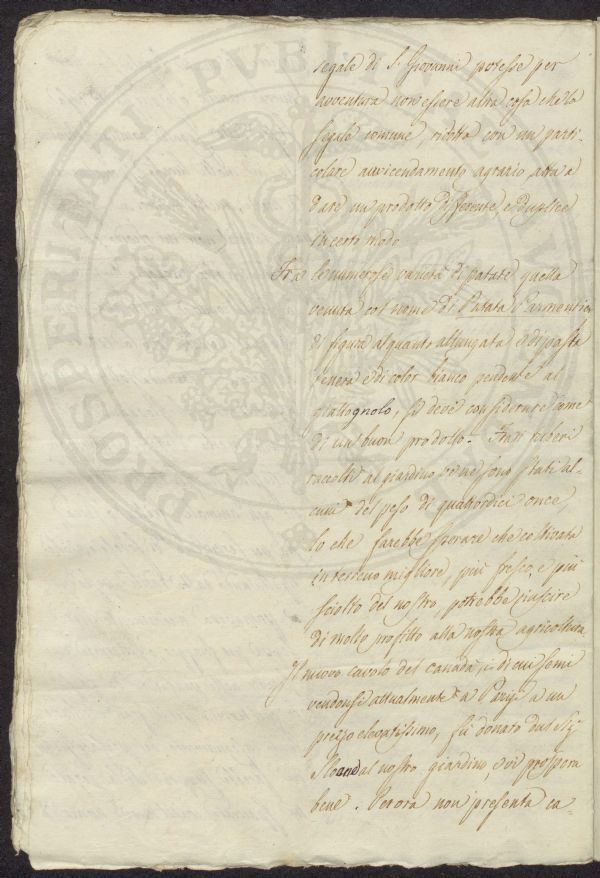 segale di S. Giovanni potesse per
avventura non essere altra cosa che la
segale comune, ridotta con un parti-
colare avvicendamento agrario atta a
dare un prodotto differente, e duplice
in certo modo.
Fra le numerose varietà di patate quella
venuta col nome di Patata Parmentier
di figura alquanto allungata, e di pasta
tenera e di color bianco pendente al
giallognolo, si deve considerare come
di un buon prodotto. Fra i tuberi
raccolti al giardino ve ne sono stati al-
cuni del peso di quattordici once,
lo che farebbe sperare che coltivata
in terreno migliore, più fresco, e più
sciolto del nostro, potrebbe riuscire
di molto profitto alla nostra agricoltura.
Il nuovo cavolo del Canadà, i di cui semi
vendonsi attualmente a Parigi a un
prezzo elevatissimo, fu donato dal Sig.r
al nostro giardino, e vi prospera
bene. Per ora non presenta ca-
PROSPERITATI PVBLI